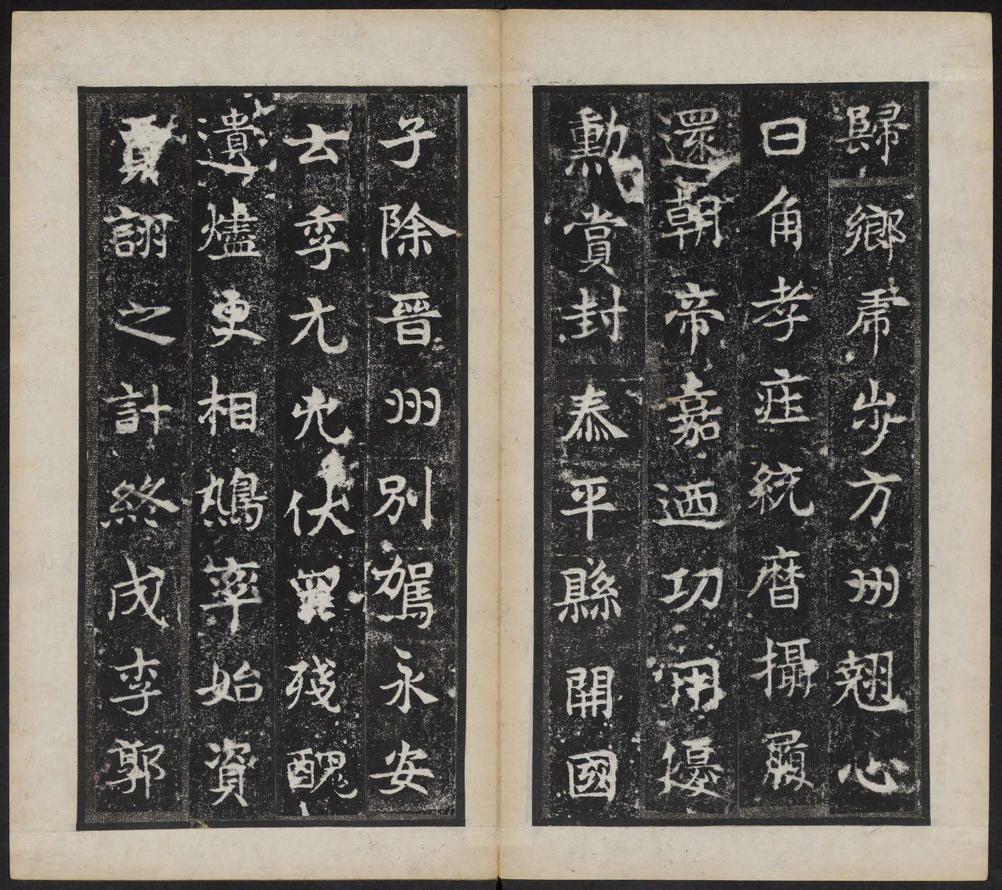 歸鄉虎步方州翹心
日角孝莊統曆攝履
還朝帝嘉迺功用優
勳賞封泰平縣開國
子除晉州別駕永安
云季元兇伏罪殘醜
遺燼更相率始資
賈詡之計終成李郭